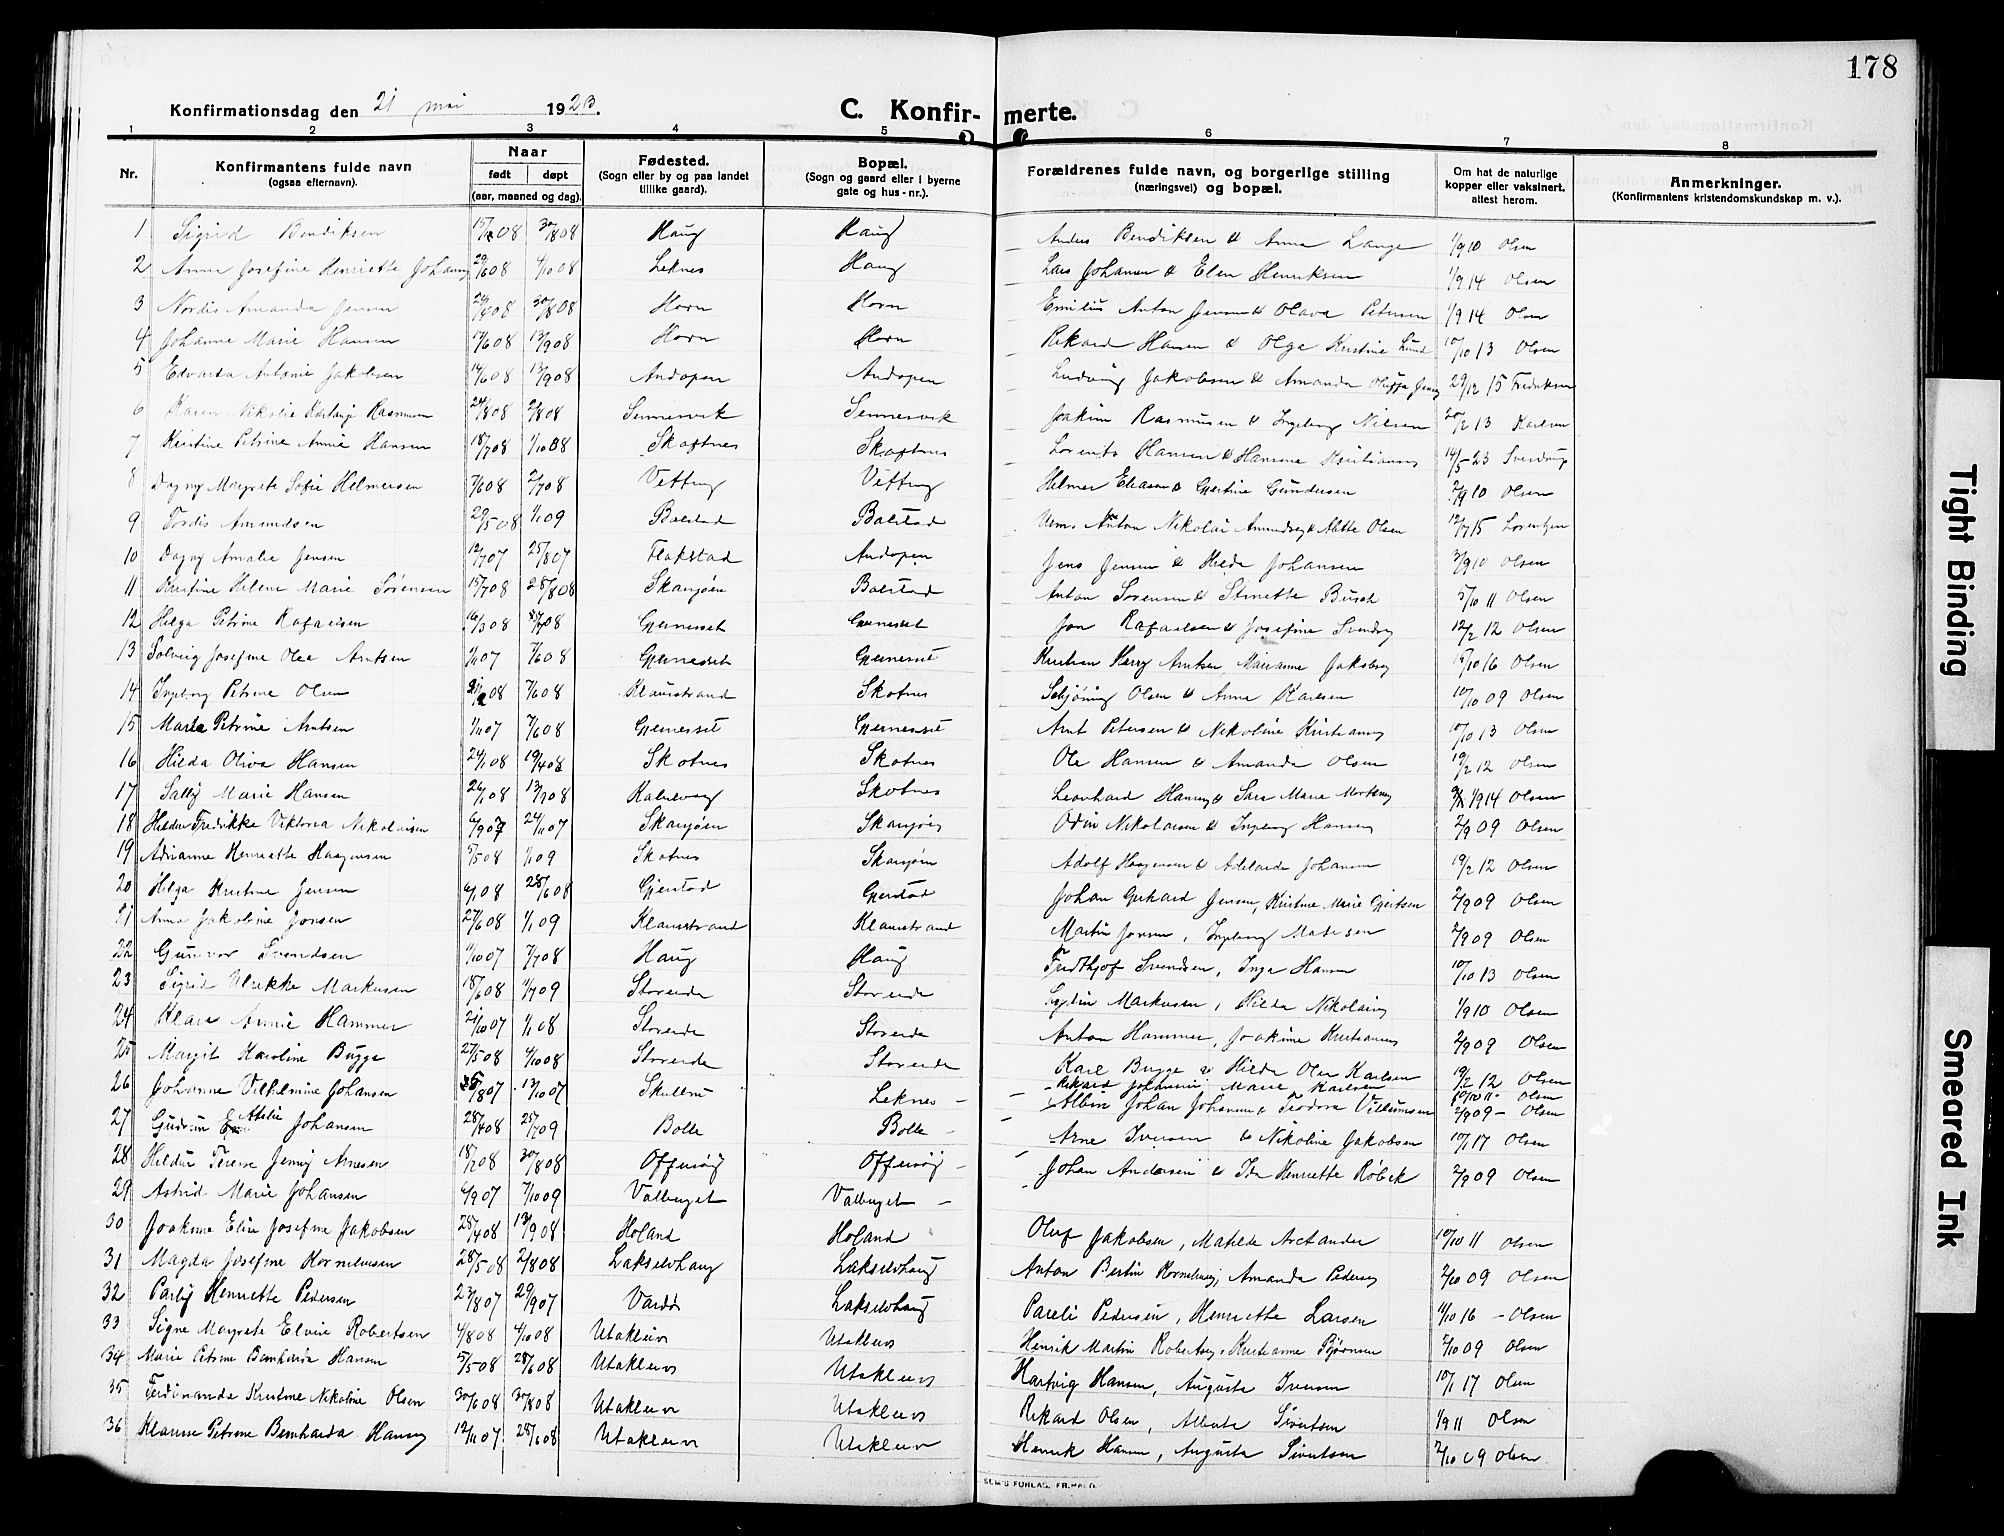 178
Konfirmationsdag den 21 mai 1923.
C. Konfir- merte.
1 2 3 4 5 6 7 8
Nr.
Konfirmantens fulde navn
(ogsaa efternavn).
Naar
født døpt
(aar, maaned og dag).
Fødested.
(Sogn eller by og paa landet
tillike gaard).
Bopæl.
(Sogn og gaard eller i byerne
gate og hus-nr.).
Forældrenes fulde navn, og borgerlige stilling
(næringsvei) og bopæl.
Om hat de naturlige
kopper eller vaksinert,
attest herom.
Anmerkninger.
(Konfirmantens kristendomskundskap m. v.).
1 Sigrid Bendiksen 30/8 08 Haug Haug Anders Bendiksen & Anna Lange 1/9 10 Olsen
2 Anna Josefine Henriette Johansen 29/6 08 4/10 08 Leknes Haug Lars Johansen & Elen Henriksen 1/9 14 Olsen
3 Nordis Amanda Jensen 29/4 08 30/8 08 Horn Horn Emilius Anton Jensen & Olava Petersen 1/9 14 Olsen
4 Johanne Marie Hansen 17/6 08 13/9 08 Horn Horn Rikard Hansen & Olga Kristine Lund 10/10 13 Olsen
5 Edvarda Antonie Jakobsen 14/6 08 13/9 08 Andopen Andopen Ludvig Jakobsen & Amanda Oluffa 29/12 15 Fredriksen
6 Karen Nikolie Rasmusen 2/8 08 Sennesvik Sennesvik Joakim Rasmusen & Ingeborg Nilsen 20/2 13 Karlsen
7 Kristine Petrine Annie Hansen 18/7 08 1/10 08 Skaftnes Skaftnes Lorents Hansen & Hansine Kristiansen 14/5 23 Sverdrup
8 Dagny Margrete Sofie Helmersen 7/6 08 2/7 08 Vetting Vetting Helmer Eliasen & Gjertine Gundersen 2/9 10 Olsen
9 Tordis Amundsen 29/5 08 1/1 09 Balstad Balstad Anton Nikolai Amundsen & Mette Olsen 12/7 15 Lorentzen
10 Dagny Amalie Jensen 12/7 07 25/8 07 Flakstad Andopen Jens Jensen & Hilda Johansen 3/9 10 Olsen
11 Kristine Helene Marie Sørensen 15/7 08 28/8 08 Skarsjøen Balstad Anton Sørensen & Stinette Busch 5/10 11 Olsen
12 Helga Petrine Rafaelsen 16/3 08 Gjernesset Gjernesset Jon Rafaelsen & Josefine Svendsen 12/2 12 Olsen
13 Solveig Josefine Olea Arntsen 1/11 07 7/6 08 Gjernesset Gjernesset Kristian Harry Arntsen, Marianne Jakobsen 15/10 16 Olsen
14 Ingeborg Petrine Olsen 7/6 08 Klaustrand Skotnes Schjøning Olsen & Anna Karlsen 10/10 09 Olsen
15 Marie Petrine Arntsen 1/11 07 7/6 08 Gjernesset Gjernesset Arnt Petersen & Nikoline Kristiansen 10/10 13 Olsen
16 Hilda Oliva Hansen 24/1 08 19/4 08 Skotnes Skotnes Ole Hansen & Amanda Olsen 19/2 12 Olsen
17 Sally Marie Hansen 26/1 08 Skotnes Leonhard Hansen & Sara Marie 1/9 14 Olsen
18 Hildur Fredrikke Viktoria Nikolaisen 6/9 07 24/11 07 Skarsjøen Skarsjøen Odin Nikolaisen & Ingeborg Hansen 2/9 09 Olsen
19 Adrianne Henriette Haagensen 5/5 08 1/1 09 Skotnes Skarsjøen Adolf Haagensen & Adelaide Johansen 19/2 12 Olsen
20 Helga Kristine Jensen 6/1 08 28/6 08 Gjerstad Gjerstad Johan Gerhard Jensen, Kristine Marie Gjertsen 2/9 09 Olsen
21 Anna Jakobine Jonsen 27/6 08 1/1 09 Klaustrand Klaustrand Martin Jonsen, Ingeborg Matisen 2/9 09 Olsen
22 Gunvor Svendsen 11/10 07 7/7 08 Haug Haug Fridthjof Svendsen, Inga Hansen 10/10 13 Olsen
23 Sigrid Ulrikke Markusen 18/6 08 11/7 09 Storeide Storeide Markusen, Hilda Nikolaisen 1/9 10 Olsen
24 Klara Annie Hammer 21/10 07 1/1 08 Storeide Storeide Anton Hammer, Joakime Kristiansen 2/9 09 Olsen
25 Margit Karoline Bugge 27/5 08 4/10 08 Storeide Storeide Karl Bugge & Hilda Olea Karlsen 19/2 12 Olsen
26 Johanne Vilhelmine Johansen 13/10 07 Skullbru Leknes Rikard Johansen Marie Karlsen 10/10 11 Olsen
27 Gudrun Atelie Johansen 28/4 08 25/7 09 Bolle Bolle Albin Johan Johansen & Teodora Villumsen 2/9 09 Olsen
28 Hildur Terese Jenny Arnesen 18/1 08 30/8 08 Offersøy Offersøy Arne Iversen & Nikoline Jakobsen 10/1 17 Olsen
29 Astrid Marie Johansen 6/9 07 7/10 09 Valberget Valberget Johan Andersen & Ida Henriette Røbek 2/9 09 Olsen
30 Joakime Elise Josefine Jakobsen 25/4 08 13/9 08 Holand Holand Oluf Jakobsen, Matilde Arctander 10/10 11 Olsen
31 Magda Josefine Korneliusen 28/5 08 2/8 08 Lakselvhaug Lakselvhaug Anton Bertin Korneliusen, Amanda Pedersen 2/10 09 Olsen
32 Parly Henriette Pedersen 23/8 07 29/9 07 Vardø Lakselvhaug Pareli Pedersen, Henriette Larsen 11/10 16 - Olsen
33 Signe Margrete Elvine Robertsen 4/8 08 4/10 08 Utakleiv Utakleiv Henrik Martin Robertsen, Kristianne Bjørnsen 2/10 09 Olsen
34 Marie Petrine Bernharda Hansen 5/5 08 28/6 08 Utakleiv Utakleiv Hartvig Hansen, Augusta Iversen 10/1 17 Olsen
35 Ferdinanda Kristine Nikoline Olsen 30/6 08 30/8 08 Utakleiv Utakleiv Rikard Olsen, Alberta Sivertsen 1/9 11 Olsen
36 Klarine Petrine Bernharda Hansen 12/11 07 28/6 08 Utakleiv Utakleiv Henrik Hansen, Augusta Sivertsen 2/10 09 Olsen
SEM'S FORLAG, FR.HALD.
Tight Binding
Smeared Ink